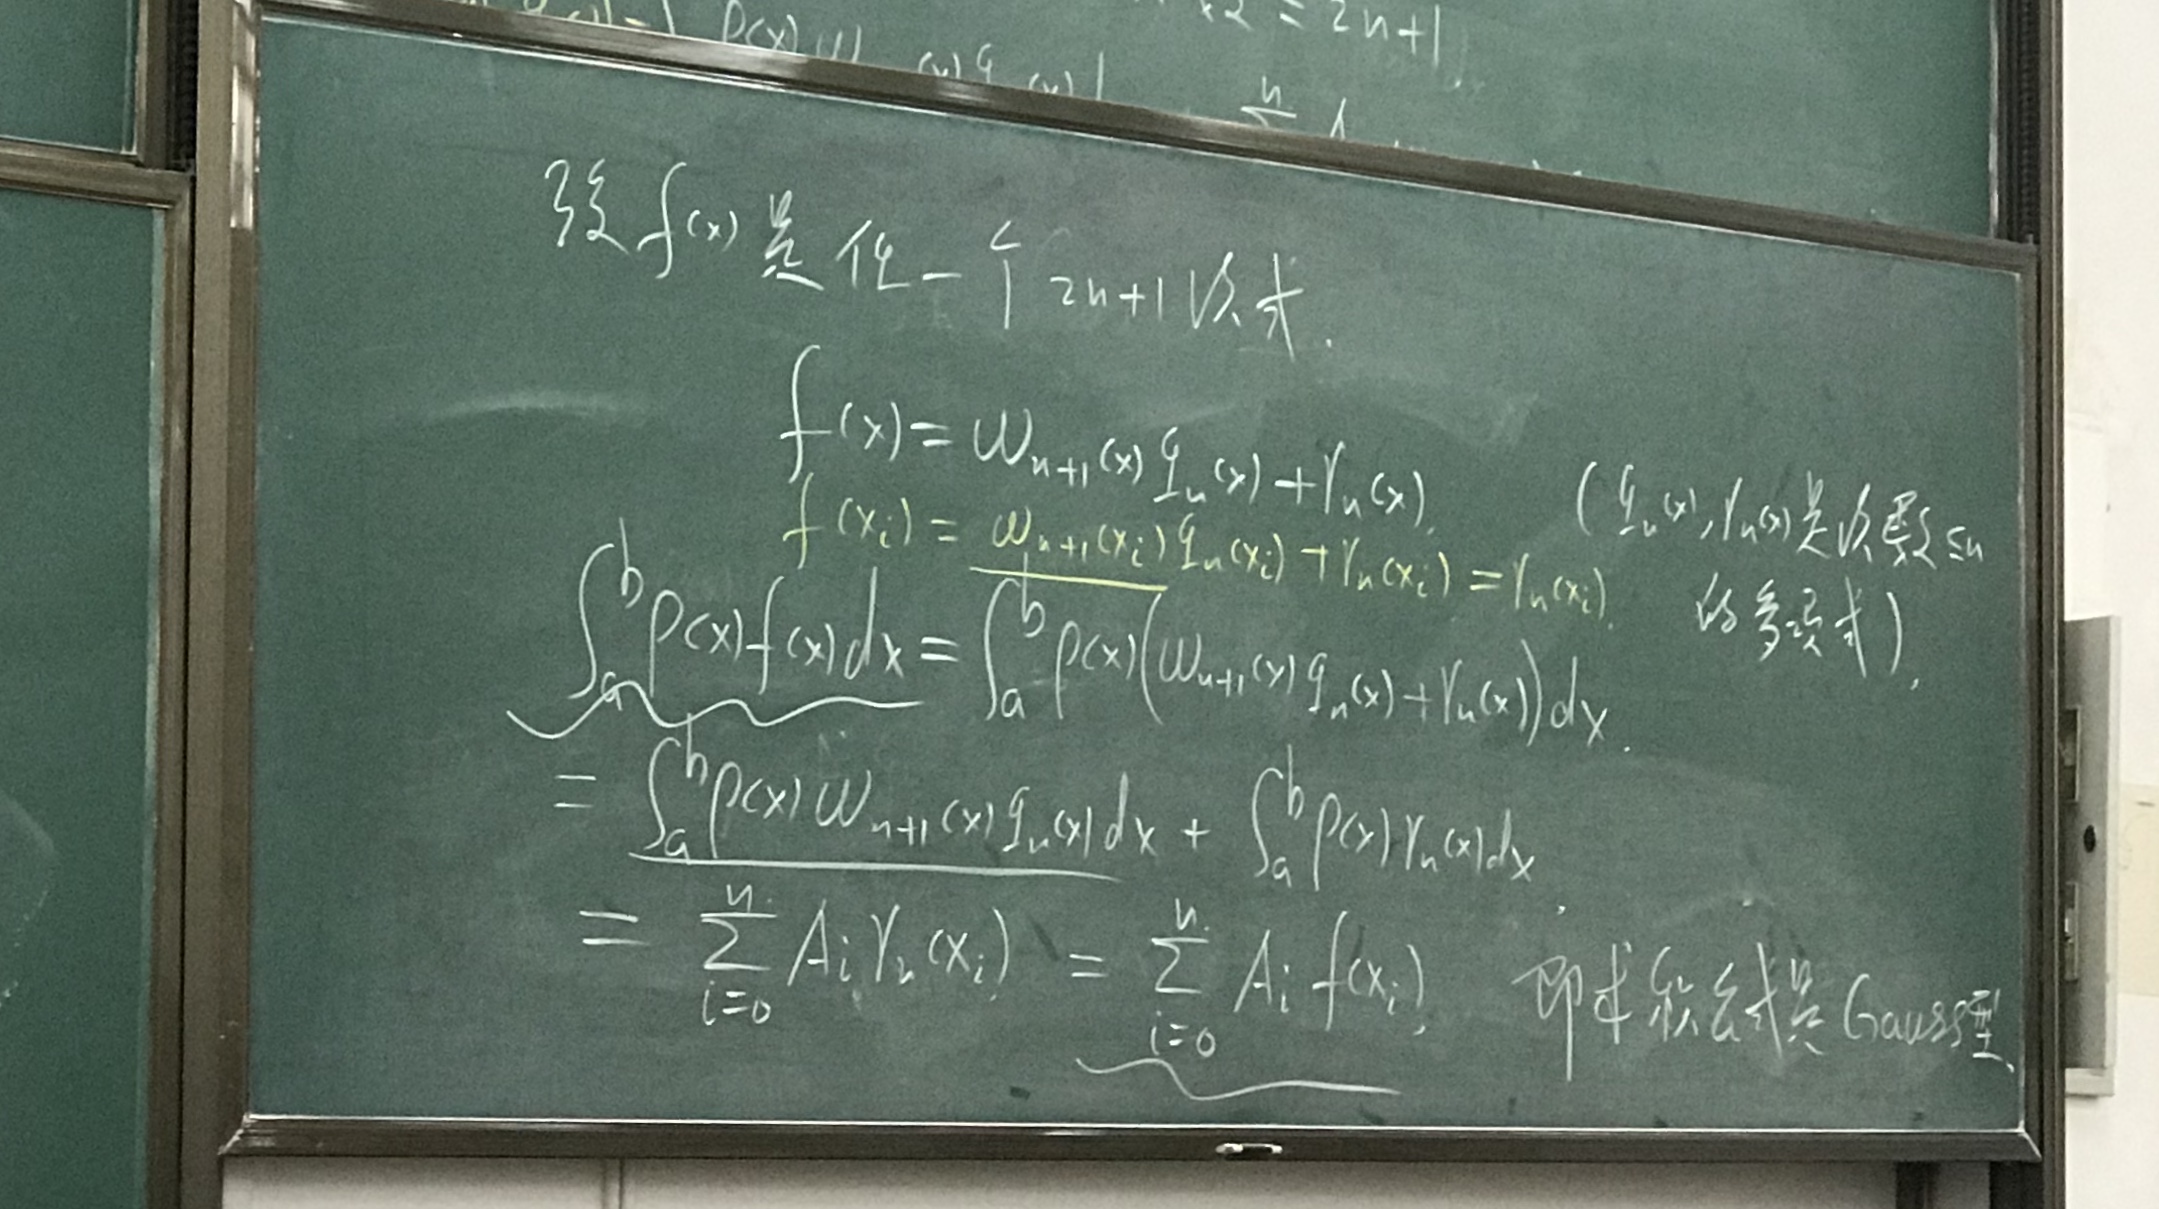 = 2n+1
ρ(x) ω
n
Σ A
设 f(x) 是任一个 2n+1 次式.
f(x) = ω_{n+1}(x) q_n(x) + r_n(x). (q_n(x), r_n(x) 是次数 ≤ n
f(x_i) = ω_{n+1}(x_i) q_n(x_i) + r_n(x_i) = r_n(x_i). 的多项式).
∫_a^b ρ(x) f(x) dx = ∫_a^b ρ(x) (ω_{n+1}(x) q_n(x) + r_n(x)) dx.
= ∫_a^b ρ(x) ω_{n+1}(x) q_n(x) dx + ∫_a^b ρ(x) r_n(x) dx
= Σ_{i=0}^n A_i r_n(x_i) = Σ_{i=0}^n A_i f(x_i). 即求积公式是 Gauss型.